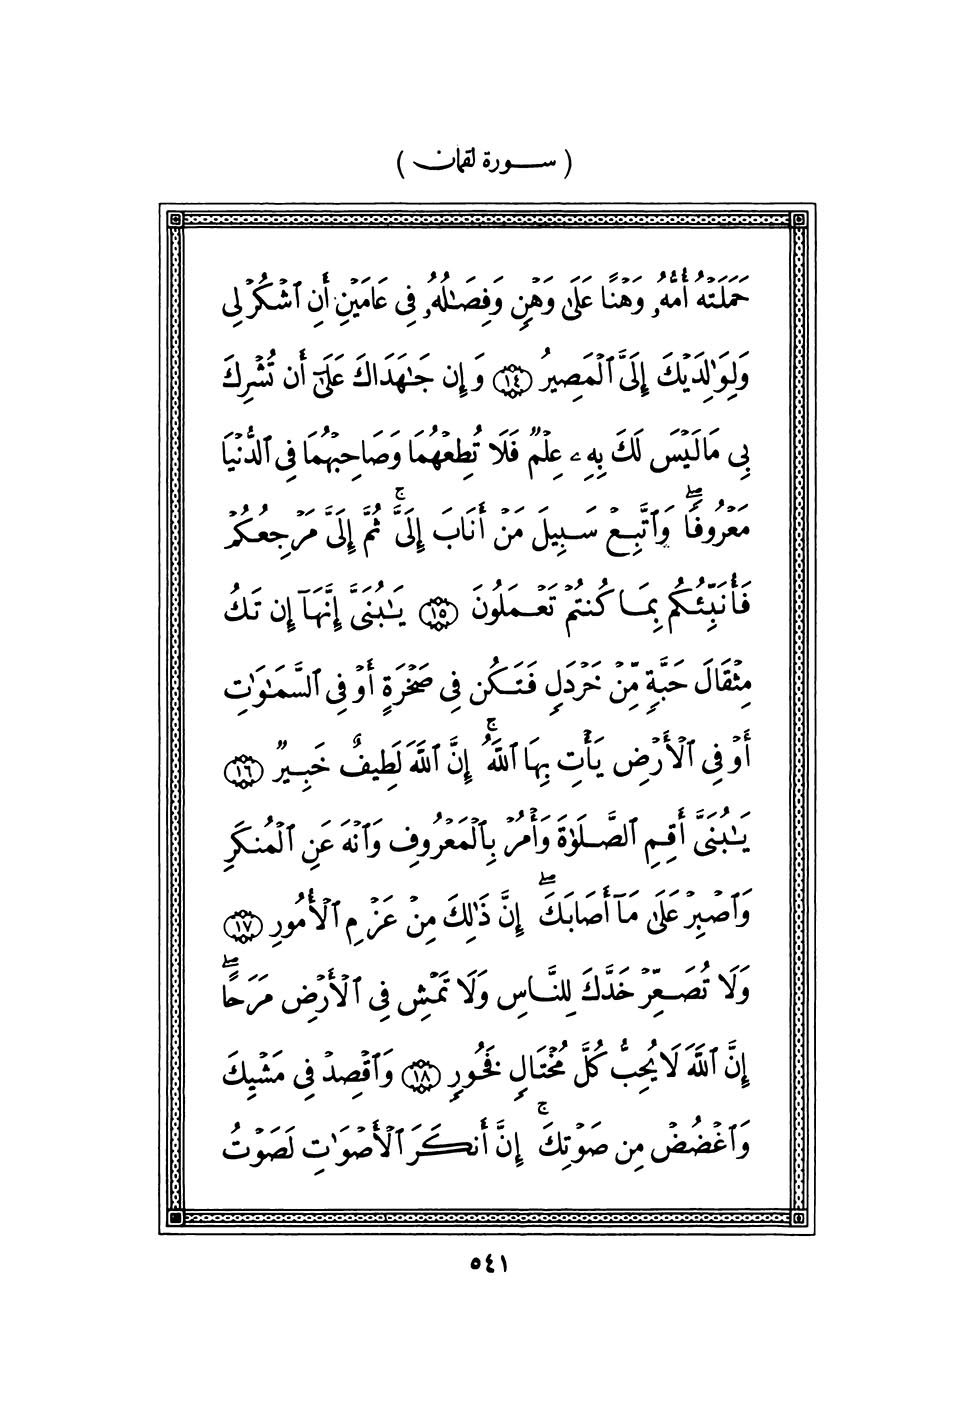 ( سورة لقمان )
حَمَلَتْهُ أُمُّهُۥ وَهْنًا عَلَىٰ وَهْنٍ وَفِصَـٰلُهُۥ فِى عَامَيْنِ أَنِ ٱشْكُرْ لِى
وَلِوَٰلِدَيْكَ إِلَىَّ ٱلْمَصِيرُ ١٤ وَإِن جَـٰهَدَاكَ عَلَىٰٓ أَن تُشْرِكَ
بِى مَا لَيْسَ لَكَ بِهِۦ عِلْمٌ فَلَا تُطِعْهُمَا وَصَاحِبْهُمَا فِى ٱلدُّنْيَا
مَعْرُوفًا ۖ وَٱتَّبِعْ سَبِيلَ مَنْ أَنَابَ إِلَىَّ ۚ ثُمَّ إِلَىَّ مَرْجِعُكُمْ
فَأُنَبِّئُكُم بِمَا كُنتُمْ تَعْمَلُونَ ١٥ يَـٰبُنَىَّ إِنَّهَآ إِن تَكُ
مِثْقَالَ حَبَّةٍ مِّنْ خَرْدَلٍ فَتَكُن فِى صَخْرَةٍ أَوْ فِى ٱلسَّمَـٰوَٰتِ
أَوْ فِى ٱلْأَرْضِ يَأْتِ بِهَا ٱللَّهُ ۚ إِنَّ ٱللَّهَ لَطِيفٌ خَبِيرٌ ١٦
يَـٰبُنَىَّ أَقِمِ ٱلصَّلَوٰةَ وَأْمُرْ بِٱلْمَعْرُوفِ وَٱنْهَ عَنِ ٱلْمُنكَرِ
وَٱصْبِرْ عَلَىٰ مَآ أَصَابَكَ ۖ إِنَّ ذَٰلِكَ مِنْ عَزْمِ ٱلْأُمُورِ ١٧
وَلَا تُصَعِّرْ خَدَّكَ لِلنَّاسِ وَلَا تَمْشِ فِى ٱلْأَرْضِ مَرَحًا ۖ
إِنَّ ٱللَّهَ لَا يُحِبُّ كُلَّ مُخْتَالٍ فَخُورٍ ١٨ وَٱقْصِدْ فِى مَشْيِكَ
وَٱغْضُضْ مِن صَوْتِكَ ۚ إِنَّ أَنكَرَ ٱلْأَصْوَٰتِ لَصَوْتُ
٥٤١